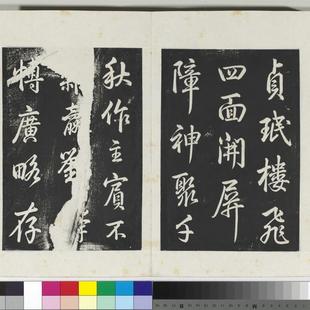 貞珉樓飛
四面開屏
障神聚千
秋作主賓不
慱廣略存